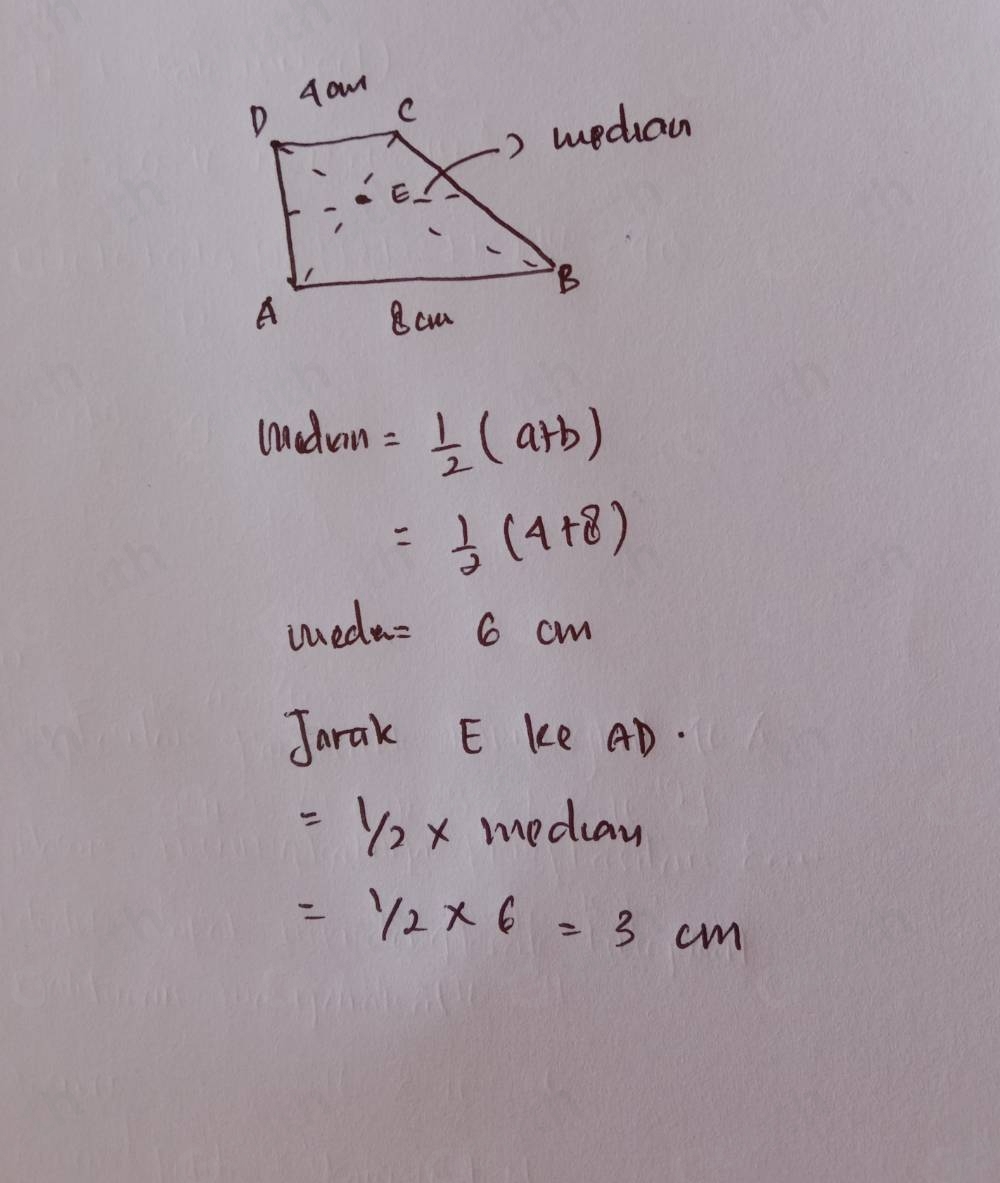 4 cm
D C
E median
A B
8 cm
Median = 1/2 (a+b)
= 1/2 (4+8)
median= 6 cm
Jarak E ke AD.
= 1/2 x median
= 1/2 x 6 = 3 cm